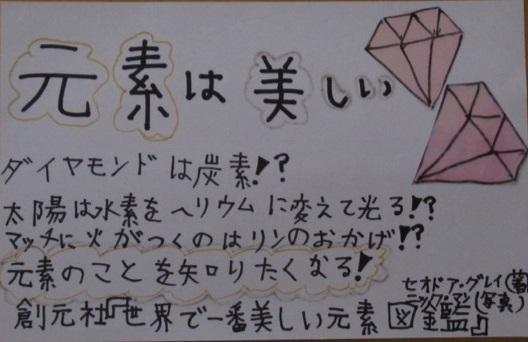 元素は美しい
ダイヤモンドは炭素!?
太陽は水素をヘリウムに変えて光る!?
マッチに火がつくのはリンのおかげ!?
元素のことを知りたくなる!
セオドア・グレイ(著)
ニック・マン(写真)
創元社『世界で一番美しい元素図鑑』